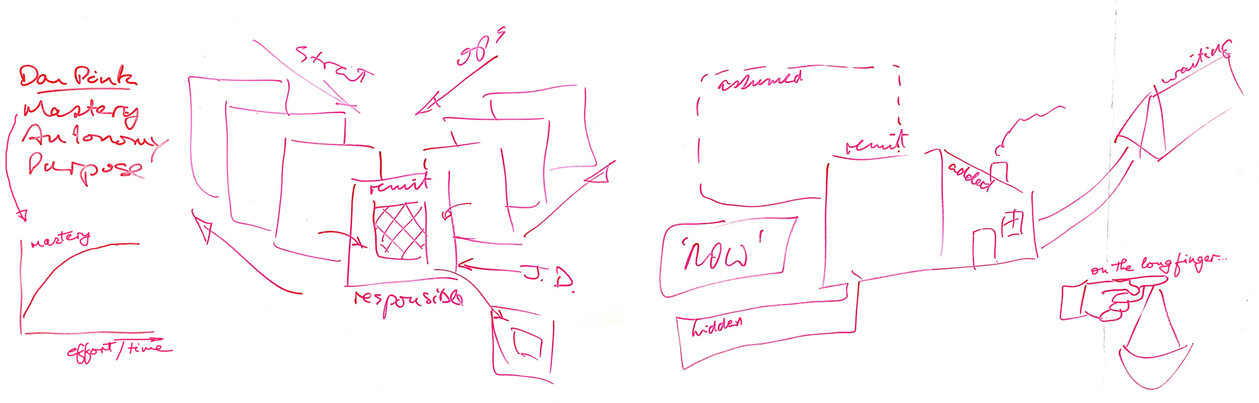 Dan Pink
Mastery
Autonomy
Purpose
mastery
effort/time
Strat
ops
remit
J.D.
responsible
assumed
remit
added
'NOW'
hidden
waiting
on the long finger...